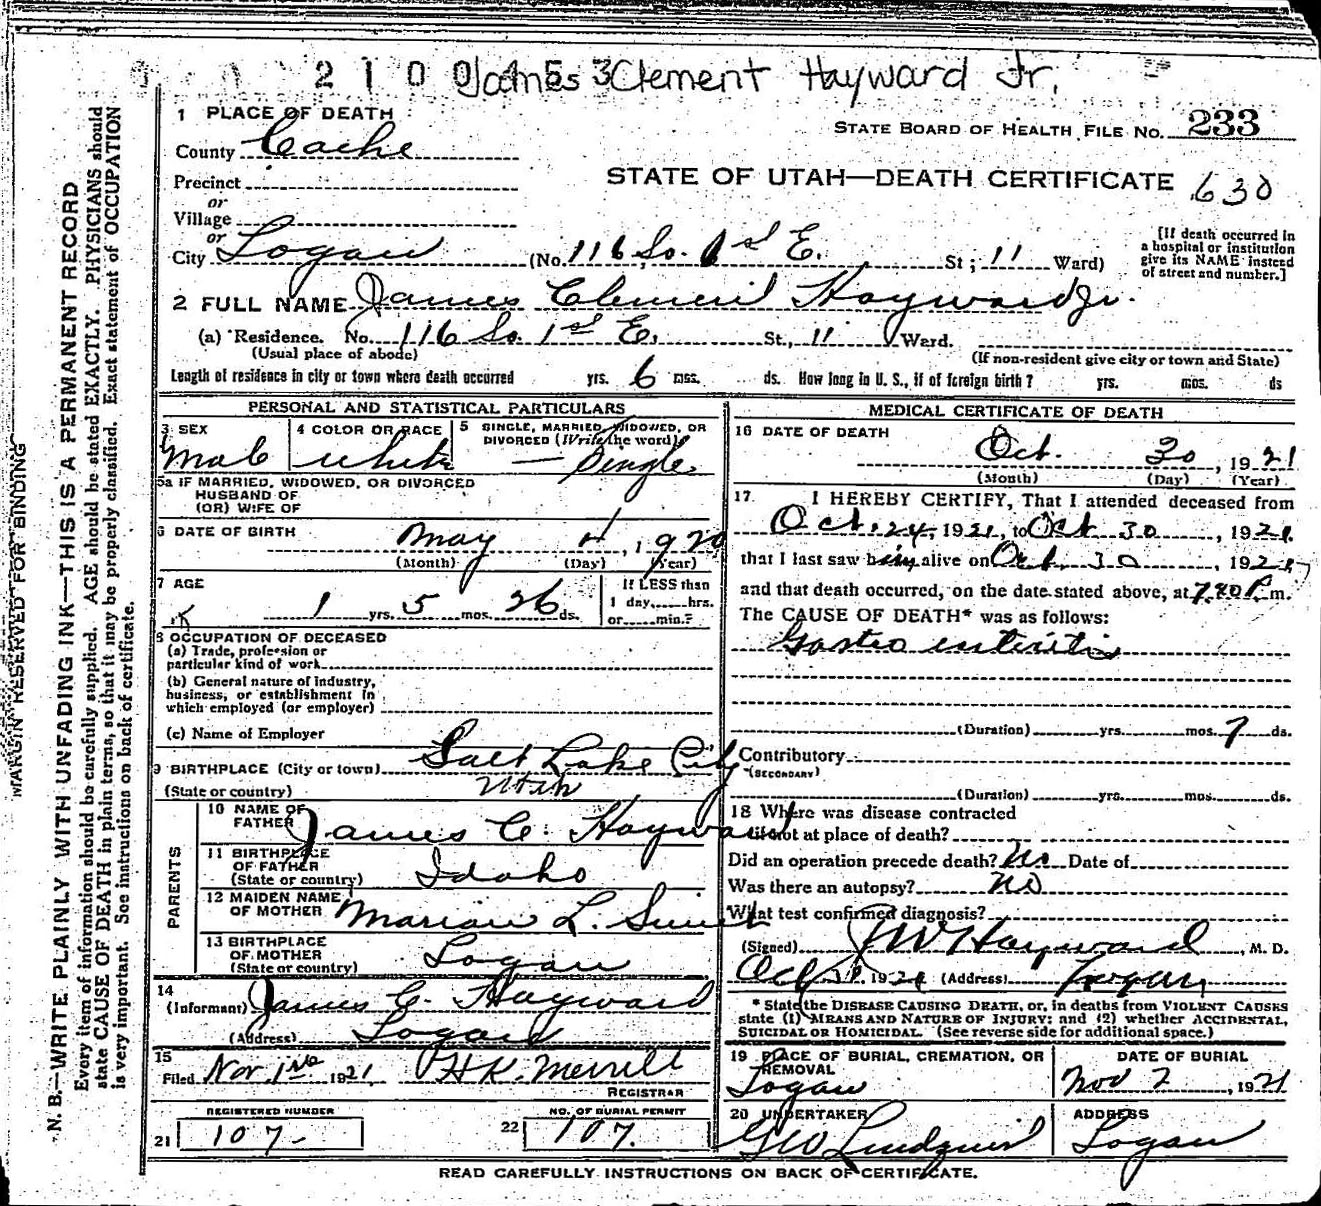 2 1 0 0 4 5 3 James Clement Hayward Jr.
1 PLACE OF DEATH
STATE BOARD OF HEALTH FILE NO. 233
County Cache
STATE OF UTAH—DEATH CERTIFICATE 630
Precinct
or
Village
or
City Logan (No. 116 So. 1st E. St; 11 Ward)
[If death occurred in
a hospital or institution
give its NAME instead
of street and number.]
2 FULL NAME James Clement Hayward Jr.
(a) Residence. No. 116 So. 1st E. St., 11 Ward.
(Usual place of abode) (If non-resident give city or town and State)
Length of residence in city or town where death occurred yrs. 6 mos. ds. How long in U. S., if of foreign birth? yrs. mos. ds
PERSONAL AND STATISTICAL PARTICULARS
3 SEX
Male
4 COLOR OR RACE
White
5 SINGLE, MARRIED, WIDOWED, OR
DIVORCED (Write the word)
— Single
5a IF MARRIED, WIDOWED, OR DIVORCED
HUSBAND OF
(OR) WIFE OF
6 DATE OF BIRTH May 4, 1920
(Month) (Day) (Year)
7 AGE
1 yrs. 5 mos. 26 ds.
If LESS than
1 day, hrs.
or min.?
8 OCCUPATION OF DECEASED
(a) Trade, profession or
particular kind of work
(b) General nature of industry,
business, or establishment in
which employed (or employer)
(c) Name of Employer
9 BIRTHPLACE (City or town) Salt Lake City
(State or country) Utah
PARENTS
10 NAME OF
FATHER James C. Hayward
11 BIRTHPLACE
OF FATHER
(State or country) Idaho
12 MAIDEN NAME
OF MOTHER Marian L.
13 BIRTHPLACE
OF MOTHER
(State or country) Logan
14
(Informant) James C. Hayward
(Address) Logan
15
Filed Nov. 1st 1921 H.K. Merrill
REGISTRAR
REGISTERED NUMBER
21 107-
NO. OF BURIAL PERMIT
22 107.
MEDICAL CERTIFICATE OF DEATH
16 DATE OF DEATH
Oct. 30, 1921
(Month) (Day) (Year)
17. I HEREBY CERTIFY, That I attended deceased from
Oct. 24, 1921, to Oct 30, 1921.
that I last saw him alive on Oct. 30, 1921,
and that death occurred, on the date stated above, at 7:20 P. m.
The CAUSE OF DEATH* was as follows:
Gastro enteritis
(Duration) yrs. mos. 7 ds.
Contributory
(SECONDARY)
(Duration) yrs. mos. ds.
18 Where was disease contracted
if not at place of death?
Did an operation precede death? No Date of
Was there an autopsy? No
What test confirmed diagnosis?
(Signed) J W Hayward, M. D.
Oct 31, 1921 (Address) Logan
* State the DISEASE CAUSING DEATH, or, in deaths from VIOLENT CAUSES
state (1) MEANS AND NATURE OF INJURY; and (2) whether ACCIDENTAL,
SUICIDAL OR HOMICIDAL. (See reverse side for additional space.)
19 PLACE OF BURIAL, CREMATION, OR
REMOVAL
Logan
DATE OF BURIAL
Nov 2, 1921
20 UNDERTAKER
GW Lindquist
ADDRESS
Logan
READ CAREFULLY INSTRUCTIONS ON BACK OF CERTIFICATE.
MARGIN RESERVED FOR BINDING
N. B.—WRITE PLAINLY WITH UNFADING INK—THIS IS A PERMANENT RECORD
Every item of information should be carefully supplied. AGE should be stated EXACTLY. PHYSICIANS should
state CAUSE OF DEATH in plain terms, so that it may be properly classified. Exact statement of OCCUPATION
is very important. See instructions on back of certificate.